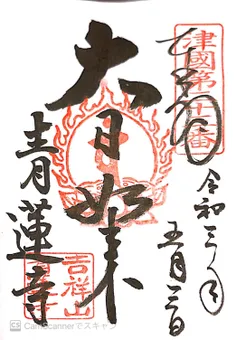 津國第
奉拝
令和三年
五月三日
大日如来
青蓮寺
吉祥山
CS CamScannerでスキャン